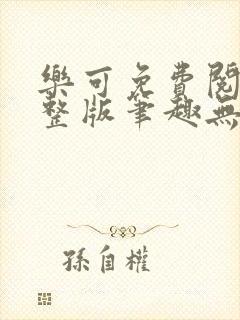 樂可免費閱
整版筆趣無
孫自權